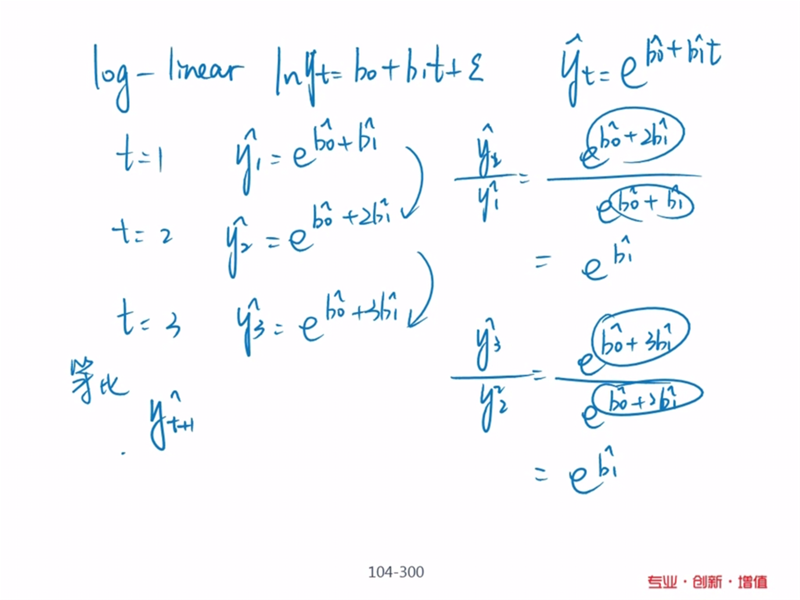 log-linear ln yt = b0 + b1t + ε ŷt = e^(b̂0 + b̂1t)
t=1 ŷ1 = e^(b̂0 + b̂1)
t=2 ŷ2 = e^(b̂0 + 2b̂1)
t=3 ŷ3 = e^(b̂0 + 3b̂1)
等比
ŷt+1
ŷ2/ŷ1 = e^(b̂0 + 2b̂1) / e^(b̂0 + b̂1)
= e^b̂1
ŷ3/ŷ2 = e^(b̂0 + 3b̂1) / e^(b̂0 + 2b̂1)
= e^b̂1
104-300
专业·创新·增值